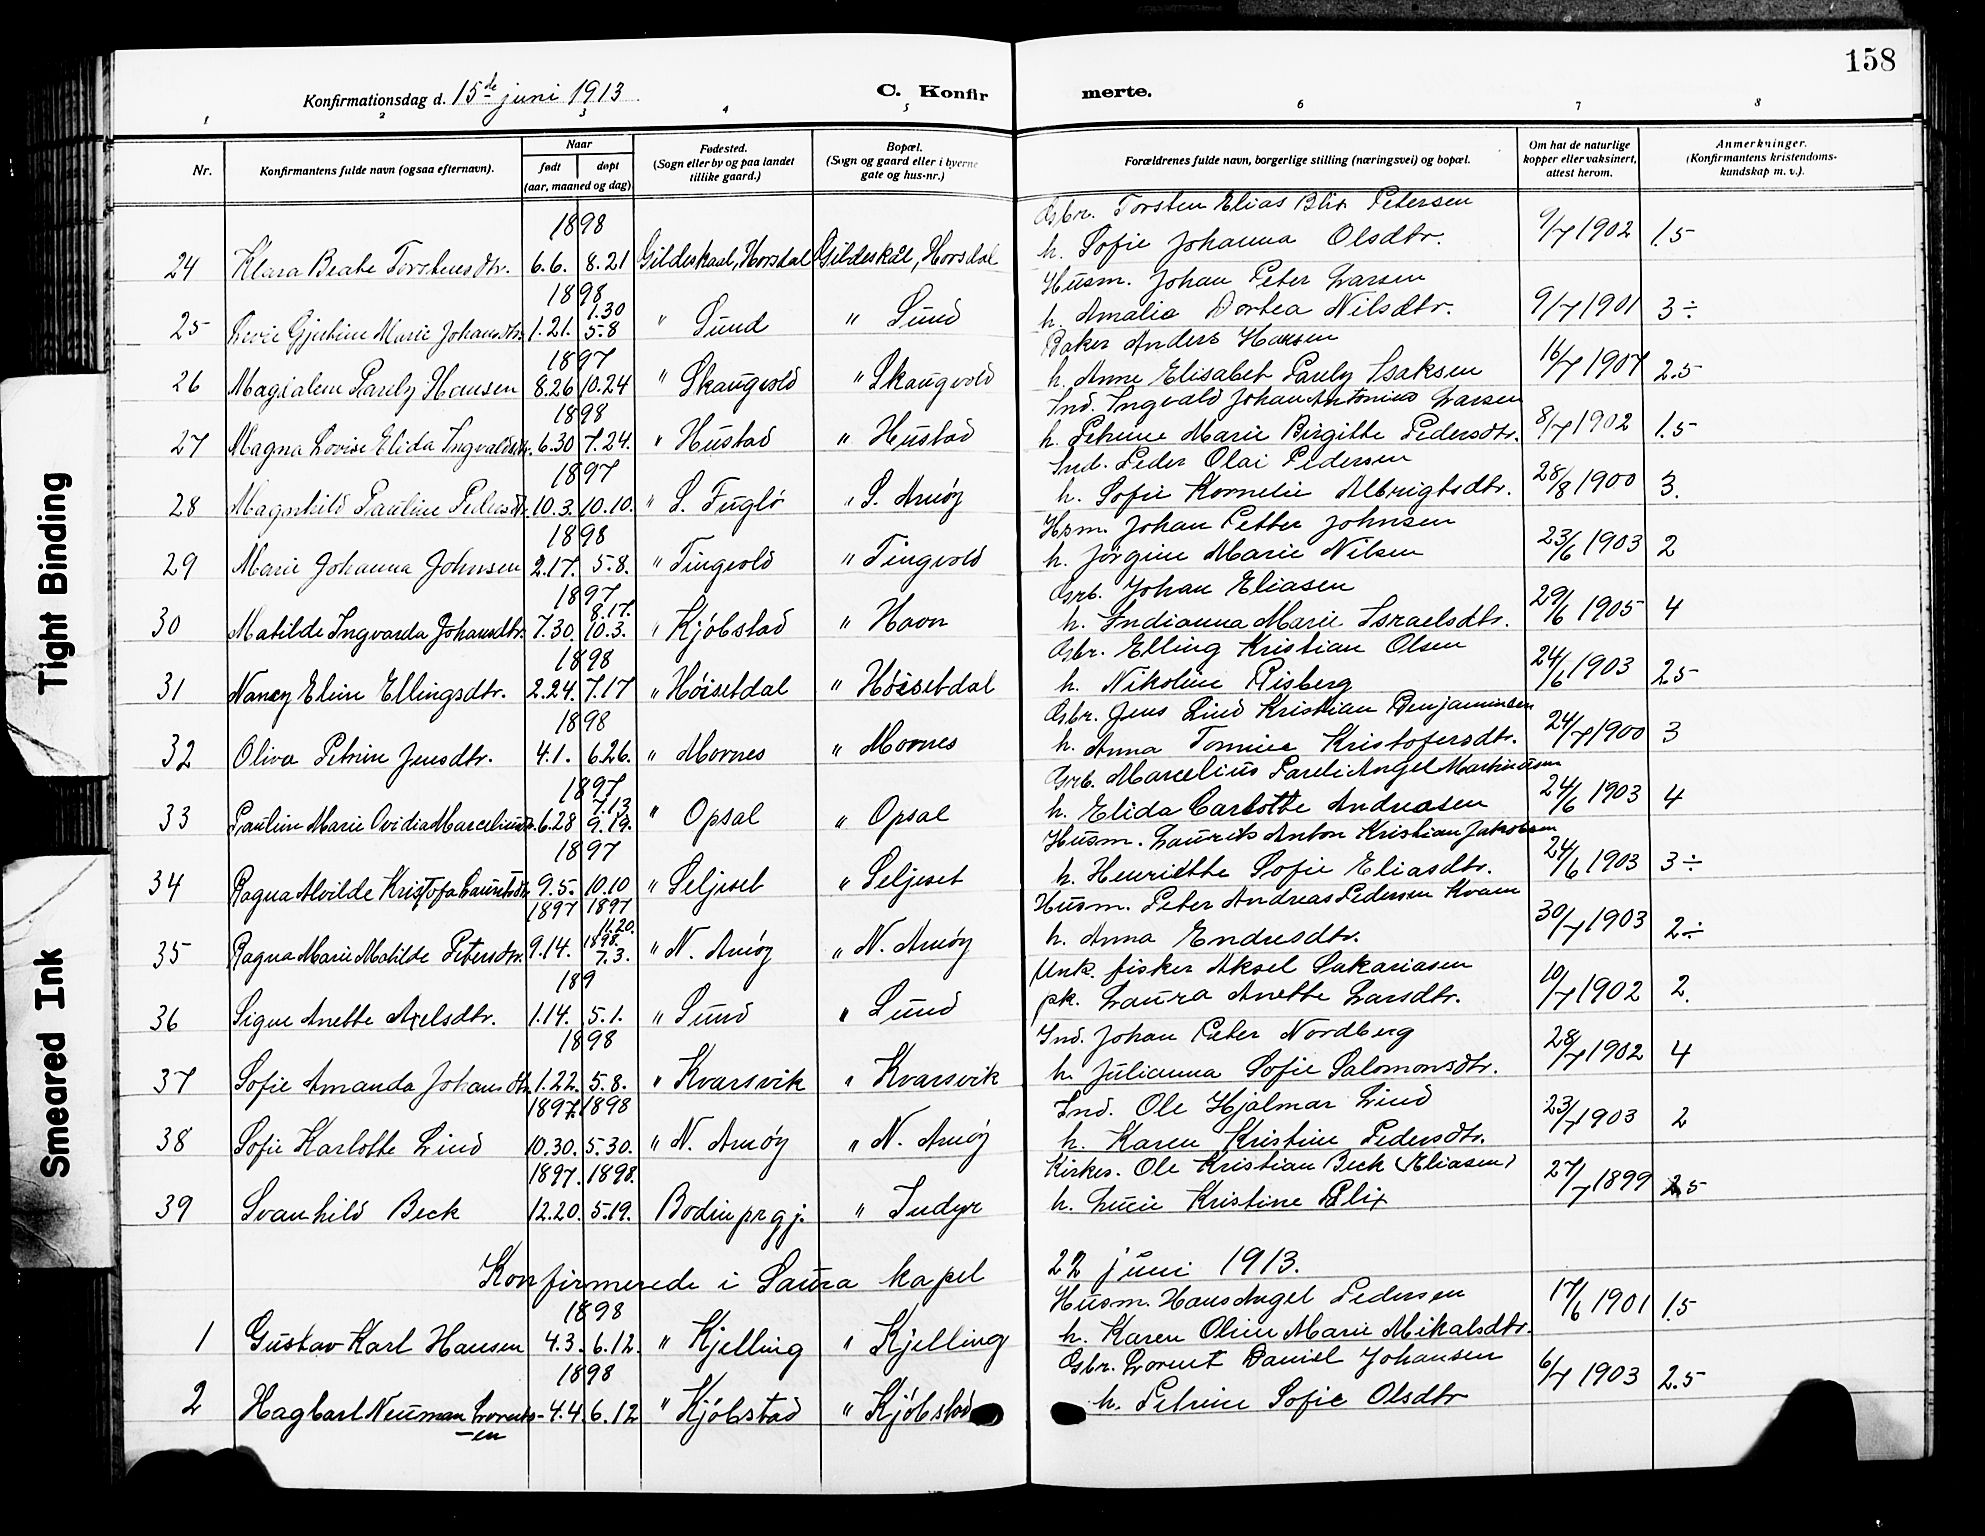 158
Konfirmationsdag d. 15de juni 1913.
C. Konfirmerte.
1 2 3 4 5 6 7 8
Nr.
Konfirmantens fulde navn (ogsaa efternavn).
Naar
født døpt
(aar, maaned og dag)
Fødested.
(Sogn eller by og paa landet
tillike gaard.)
Bopæl.
(Sogn og gaard eller i byerne
gate og hus-nr.)
Forældrenes fulde navn, borgerlige stilling (næringsvei) og bopæl.
Om hat de naturlige
kopper eller vaksinert,
attest herom.
Anmerkninger.
(Konfirmantens kristendoms-
kundskap m. v.).
1898 Gbr. Torsten Elias Blix Petersen
24 Klara Beate Torstensdtr. 6.6. 8.21 Gildeskaal, Horsdal Gildeskål, Horsdal h. Sofie Johanna Olsdtr. 9/7 1902 1.5
1898 1.30 Husm. Johan Peter Larsen
25 Gjertine Marie Johansdtr. 1.21. 5.8 " Sund " Sund h. Amalie Dortea Nilsdtr. 9/7 1901 3÷
1897 Baker Anders Hansen
26 Magdalene Parely Hansen 8.26 10.24 " Skaugvold " Skaugvold h. Anne Elisabet Parely Isaksen 16/7 1907 2.5
1898 Ind. Ingvald Johan Antonius Larsen
27 Magna Lovise Elida Ingvaldsdtr. 6.30 7.24. " Hustad " Hustad h. Petrine Marie Birgitte Pedersdtr. 8/7 1902 1.5
1897 Ind. Peder Olai Pedersen
28 Magnhild Pauline Pedersdtr. 10.3. 10.10. " S. Fuglö " S. Arnöy h. Sofie Kornelie Albrigtsdtr. 28/8 1900 3.
1898 Hsm. Johan Petter Johnsen
29 Marie Johanna Johnsen 2.17. 5.8. " Tingvold " Tingvold h. Jörgine Marie Nilsen 23/6 1903 2
1897 8.17. Grb. Johan Eliasen
30 Matilde Ingvarda Johansdtr. 7.30. 10.3. " Kjöbstad " Havn h. Indianna Marie Israelsdtr. 29/6 1905 4
1898 Gbr. Elling Kristian Olsen
31 Nancy Eline Ellingsdtr. 2.24. 7.17 " Höisetdal " Höisetdal h. Nikoline Risberg 24/6 1903 2.5
1898 Gbr. Jens Lind Kristian Benjaminsen
32 Oliva Petrine Jensdtr. 4.1. 6.26. " Mornes " Mornes h. Anna Tomine Kristofersdtr. 24/7 1900 3
1897 7.13 Grb. Marcelius Pareli Angel Martinussen
33 Pauline Marie Ovidia Marceliusdtr. 6.28 9.19. " Opsal " Opsal h. Elida Carlotte Andreasen 24/6 1903 4
1897 Husm. Laurits Anton Kristian Jakobsen
34 Ragna Alvilde Kristofa Lauritsdtr. 9.5. 10.10 " Seljeset " Seljeset h. Henriette Sofie Eliasdtr. 24/6 1903 3÷
1897 1897 11.20. Husm. Peter Andreas Pedersen Kvam
35 Ragna Marie Matilde Petersdtr. 9.14. 1898. 7.3. " N. Arnöy " N. Arnöy h. Anna Endresdtr. 30/7 1903 2÷
189 Unk. fisker Aksel Sakariasen
36 Signe Anette Axelsdtr. 1.14. 5.1. " Sund " Sund pk. Laura Anette Larsdtr. 10/7 1902 2.
1898 Ind. Johan Peter Nordberg
37 Sofie Amanda Johansdtr. 1.22. 5.8. " Kvarsvik " Kvarsvik h. Julianna Sofie Salomonsdtr. 28/7 1902 4
1897. 1898 Ind. Ole Hjalmar Lind
38 Sofie Karlotte Lind 10.30. 5.30. " N. Arnöy " N. Arnöy h. Karen Kristine Pedersdtr. 23/7 1903 2
1897. 1898. Kirkes. Ole Kristian Beck (Eliasen)
39 Svanhild Beck 12.20. 5.19. Bodin prgj. " Indyr h. Lucie Kristine Blix 27/7 1899 2.5
Konfirmerede i Saura kapel 22 juni 1913.
1898 Husm. Hans Angel Pedersen
1 Gustav Karl Hansen 4.3. 6.12. " Kjelling " Kjelling h. Karen Oline Marie Mikalsdtr. 17/6 1901 1.5
1898 Gbr. Lorent Daniel Johansen
2 Hagbart Neuman Lorents- 4.4. 6.12 " Kjöbstad " Kjöbstad h. Petrine Sofie Olsdtr 6/7 1903 2.5
-en
Tight Binding
Smeared Ink